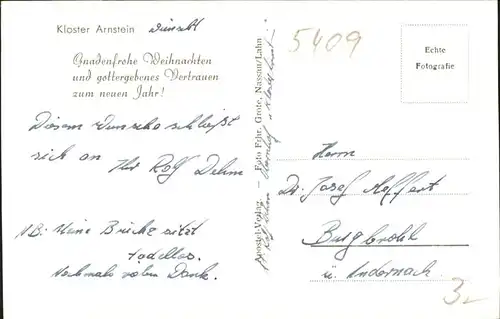 Kloster Arnstein wünscht
Gnadenfrohe Weihnachten
und gottergebenes Vertrauen
zum neuen Jahr!
Diesem Wunsche schließt
sich an Ihr Rolf Dehm
NB: Meine Brücke sitzt
tadellos.
Nochmals vielen Dank.
Apostel-Verlag. — Foto Frhr. Grote, Nassau/Lahn
5409
Echte
Fotografie
Herrn
Dr. Josef
Burgbrohl
ü. Andernach
3,-